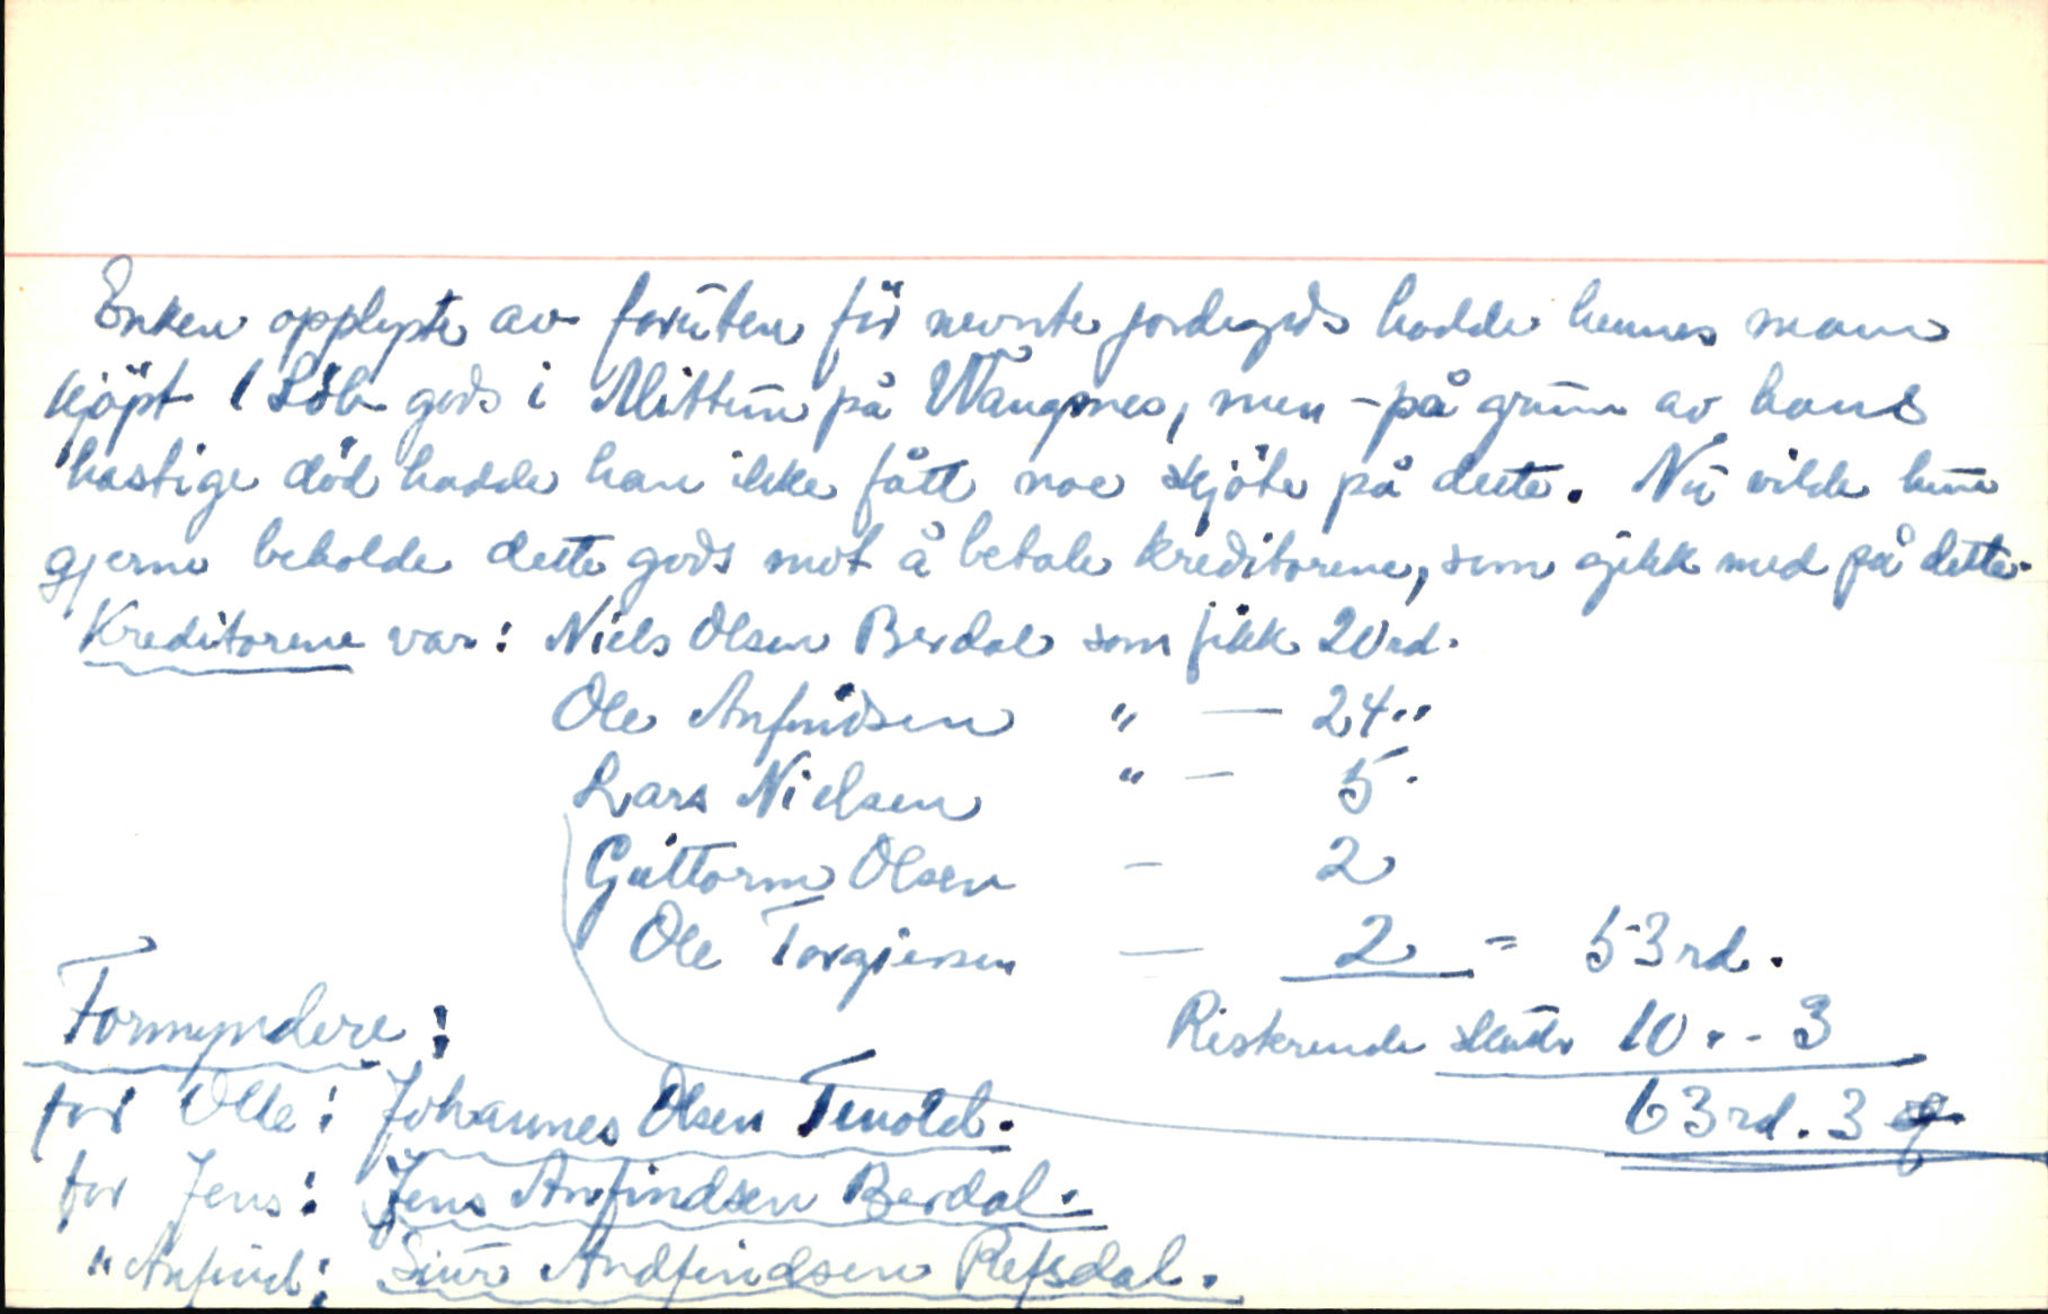 Enken opplyste av foruten för nevnte jordegods hadde hennes mann
kjöpt 1 Löb gods i Mittun på Wangsnes, men - på grunn av hans
hastige död hadde han ikke fått noe skjöte på dette. Nu vilde hun
gjerne beholde dette gods mot å betale kreditorene, som gikk med på dette.
Kreditorene var: Niels Olsen Berdal som fikk 20 rd.
Ole Anfindsen " — 24 "
Lars Nielsen " — 5 .
Guttorm Olsen — 2
Ole Torgiersen — 2 = 53 rd.
Formyndere:
Resterende 10 . - 3
63 rd. 3
for Olle: Johannes Olsen Tenold.
for Jens: Jens Anfindsen Berdal.
" Anfind: Siur Andfindsen Refsdal.